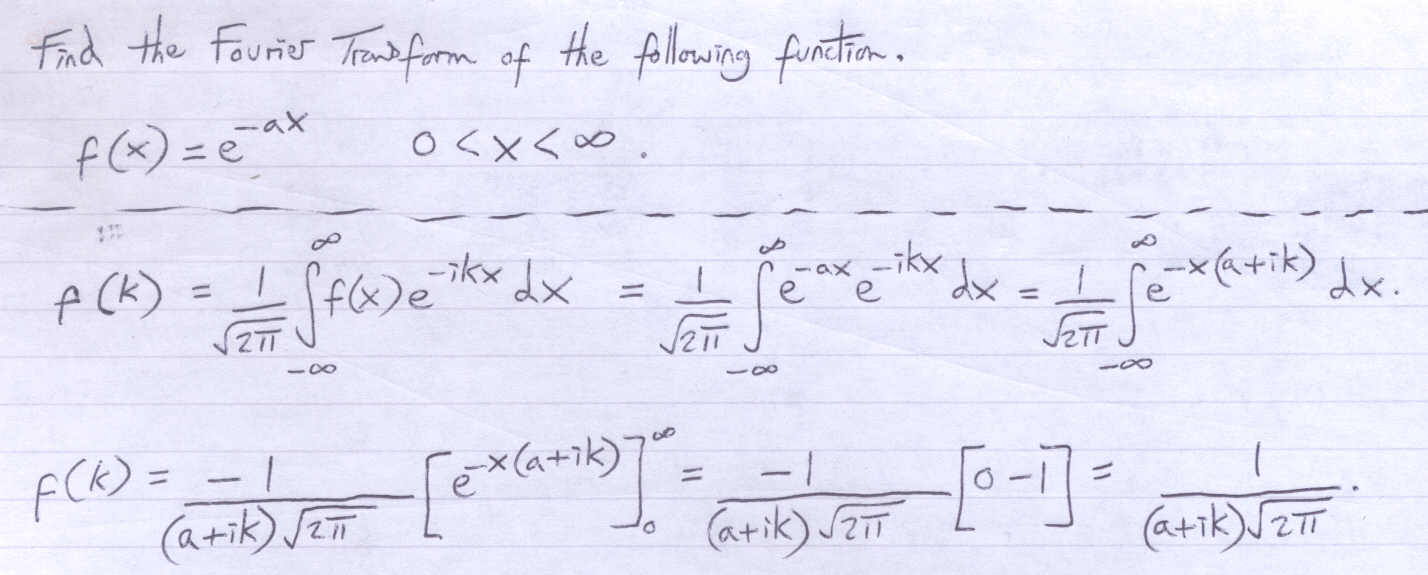 Find the Fourier Transform of the following function.
f(x) = e^{-ax}    0 < x < ∞.
f(k) = \frac{1}{\sqrt{2π}} \int_{-∞}^{∞} f(x) e^{-ikx} dx = \frac{1}{\sqrt{2π}} \int_{-∞}^{∞} e^{-ax} e^{-ikx} dx = \frac{1}{\sqrt{2π}} \int_{-∞}^{∞} e^{-x(a+ik)} dx.
f(k) = \frac{-1}{(a+ik)\sqrt{2π}} [e^{-x(a+ik)}]_{0}^{∞} = \frac{-1}{(a+ik)\sqrt{2π}} [0-1] = \frac{1}{(a+ik)\sqrt{2π}}.